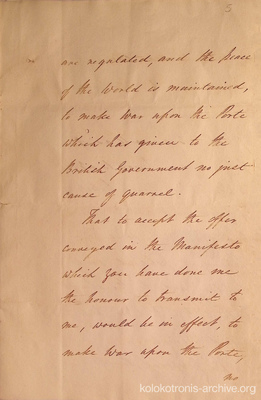 5
are regulated, and the Peace
of the World is maintained,
to make War upon the Porte
which has given to the
British Government no just
cause of quarrel.
That to accept the offer
conveyed in the Manifesto
which you have done me
the honour to transmit to
me, would be in effect, to
make War upon the Porte,
no
kolokotronis-archive.org